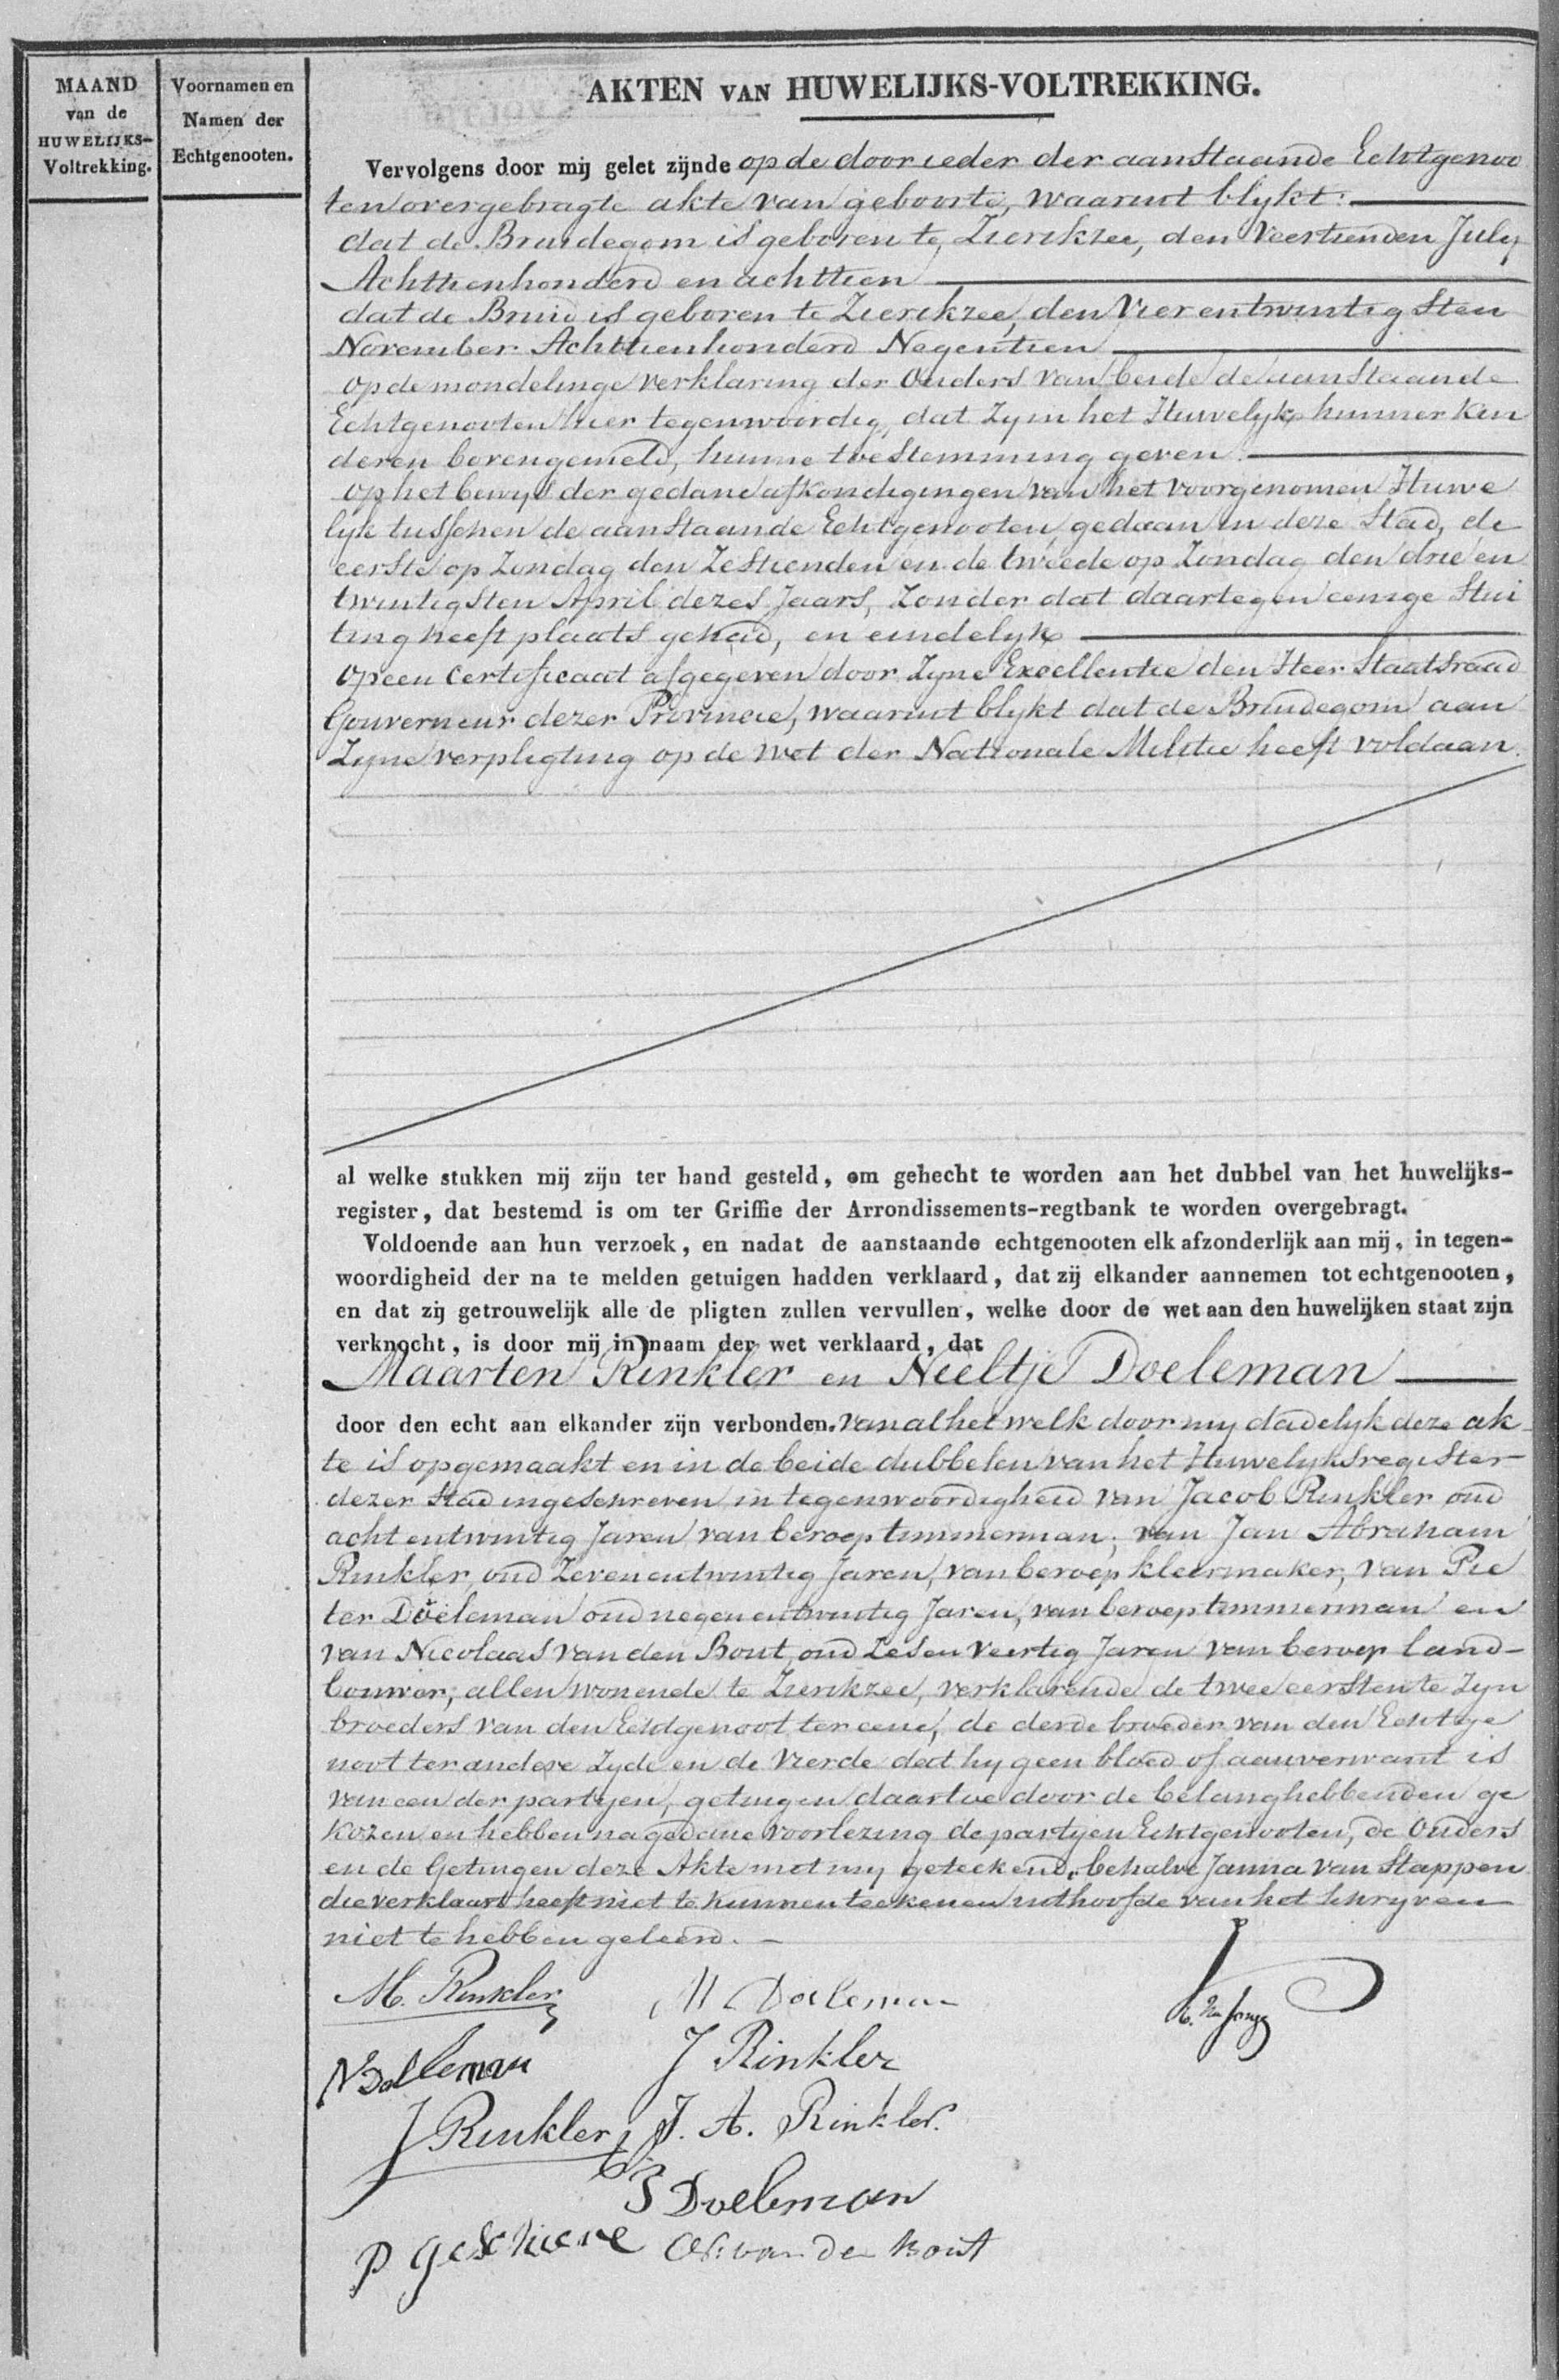 AKTEN VAN HUWELIJKS-VOLTREKKING.
MAAND
van de
HUWELIJKS-
Voltrekking.
Voornamen en
Namen der
Echtgenooten.
Vervolgens door mij gelet zijnde op de door ieder der aanstaande Echtgenoo
ten overgebragte akte van geboorte, waaruit blykt:
dat de Bruidegom is geboren te Zierikzee, den Veertienden July
Achttienhonderd en achttien
dat de Bruid is geboren te Zierikzee, den Vier entwintigsten
November Achttienhonderd Negentien
op de mondelinge verklaring der Ouders van beide de aanstaande
Echtgenooten hier tegenwoordig, dat Zy in het Huwelyk hunner Kin
deren bovengemeld, hunne toestemming geven.
op het bewys der gedane afkondigingen van het voorgenomen Huwe
lyk tusschen de aanstaande Echtgenooten, gedaan in deze Stad, de
eerste op Zondag den Zestienden en de tweede op Zondag den drie en
twintigsten April dezes Jaars, Zonder dat daartegen eenige Stui
ting heeft plaats gehad, en eindelyk
op een Certificaat afgegeven door Zyne Excellentie den Heer Staatsraad
Gouverneur dezer Provincie, waaruit blykt dat de Bruidegom aan
Zyne verpligting op de wet der Nationale Militie heeft voldaan.
al welke stukken mij zijn ter hand gesteld, om gehecht te worden aan het dubbel van het huwelijks-
register, dat bestemd is om ter Griffie der Arrondissements-regtbank te worden overgebragt.
Voldoende aan hun verzoek, en nadat de aanstaande echtgenooten elk afzonderlijk aan mij, in tegen-
woordigheid der na te melden getuigen hadden verklaard, dat zij elkander aannemen tot echtgenooten,
en dat zij getrouwelijk alle de pligten zullen vervullen, welke door de wet aan den huwelijken staat zijn
verknocht, is door mij in naam der wet verklaard, dat
Maarten Rinkler en Neeltje Doeleman
door den echt aan elkander zijn verbonden. Van al het welk door my dadelyk deze ak
te is opgemaakt en in de beide dubbelen van het Huwelyksregister
dezer Stad ingeschreven in tegenwoordigheid van Jacob Rinkler oud
acht entwintig Jaren van beroep timmerman, van Jan Abraham
Rinkler, oud Zeven entwintig Jaren, van beroep kleermaker, van Pie
ter Doeleman oud negen entwintig Jaren, van beroep timmerman en
van Nicolaas van den Bout, oud Zes en Veertig Jaren van beroep land-
bouwer, allen wonende te Zierikzee, verklarende de twee eersten te Zyn
broeders van den Echtgenoot ter eene, de derde broeder van den Echtge
noot ter andere Zyde en de Vierde dat hy geen bloed of aanverwant is
van een der partyen, getuigen daartoe door de belanghebbenden ge
kozen en hebben na gedane voorlezing de partyen Echtgenooten, de Ouders
en de Getuigen deze Akte met my geteekend, behalve Janna van Stappen
die verklaart heeft niet te kunnen teekenen uithoofde van het schryven
niet te hebben geleerd.
M. Rinkler
M Doeleman
N Doeleman
J Rinkler
J Rinkler
J. A. Rinkler
P Doeleman
P Geschiere
van den Bout